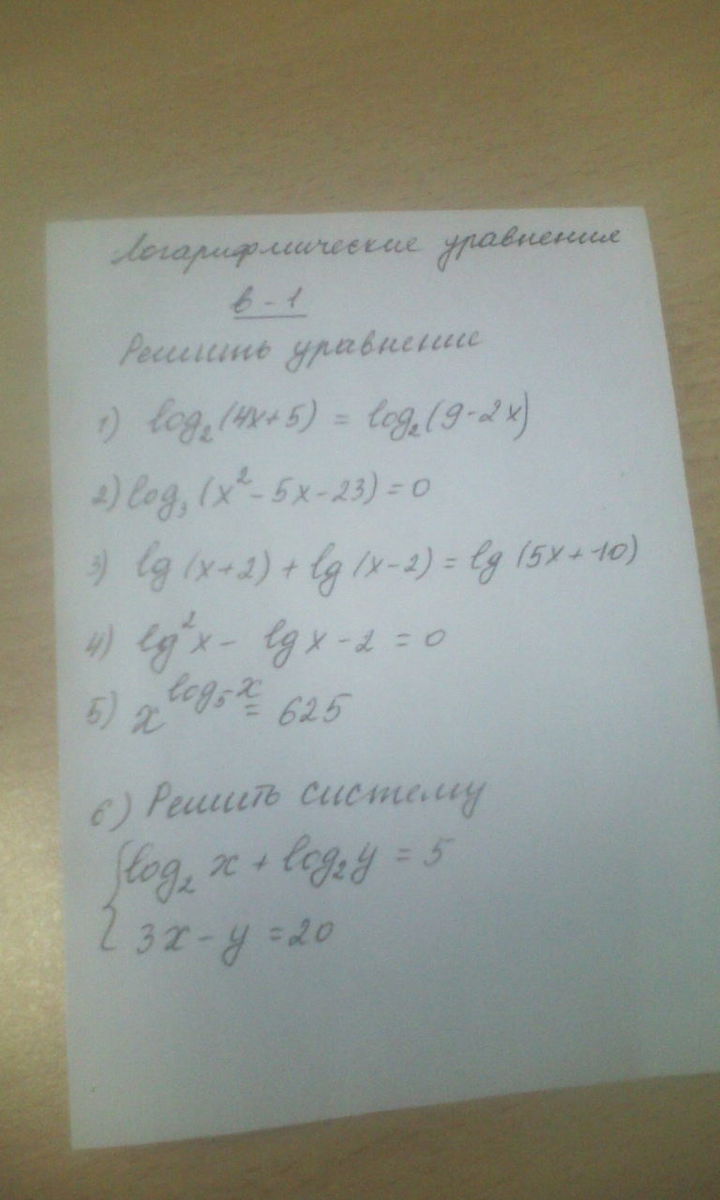 Логарифмические уравнения
в-1
Решить уравнение
1) log₂(4x+5) = log₂(9-2x)
2) log₃(x²-5x-23)=0
3) lg(x+2)+lg(x-2)=lg(5x+10)
4) lg²x - lgx-2=0
5) x^log₅x = 625
6) Решить систему
{log₂x+log₂y=5
3x-y=20